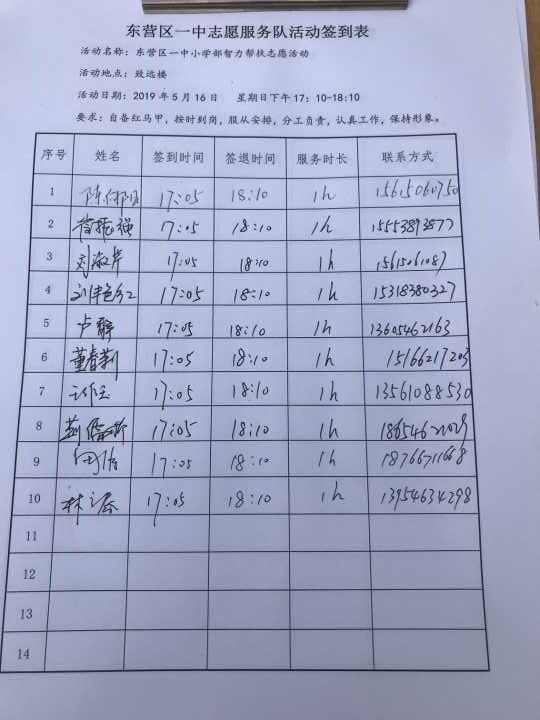 东营区一中志愿服务队活动签到表
活动名称：东营区一中小学部智力帮扶志愿活动
活动地点：致远楼
活动日期：2019年5月16日 星期日下午17：10-18:10
要求：自备红马甲，按时到岗，服从安排，分工负责，认真工作，保持形象。
序号 姓名 签到时间 签退时间 服务时长 联系方式
1 17:05 18:10 1h 15615060750
2 7:05 18:10 1h 15553893877
3 刘淑岸 17:05 18:10 1h 15615061087
4 17:05 18:10 1h 15318380327
5 卢静 17:05 18:10 1h 13605462163
6 董春荆 17:05 18:10 1h 15166217203
7 17:05 18:10 1h 13561088530
8 17:05 18:10 1h
9 17:05 18:10 1h 18766711668
10 林 17:05 18:10 1h 13954634298
11
12
13
14